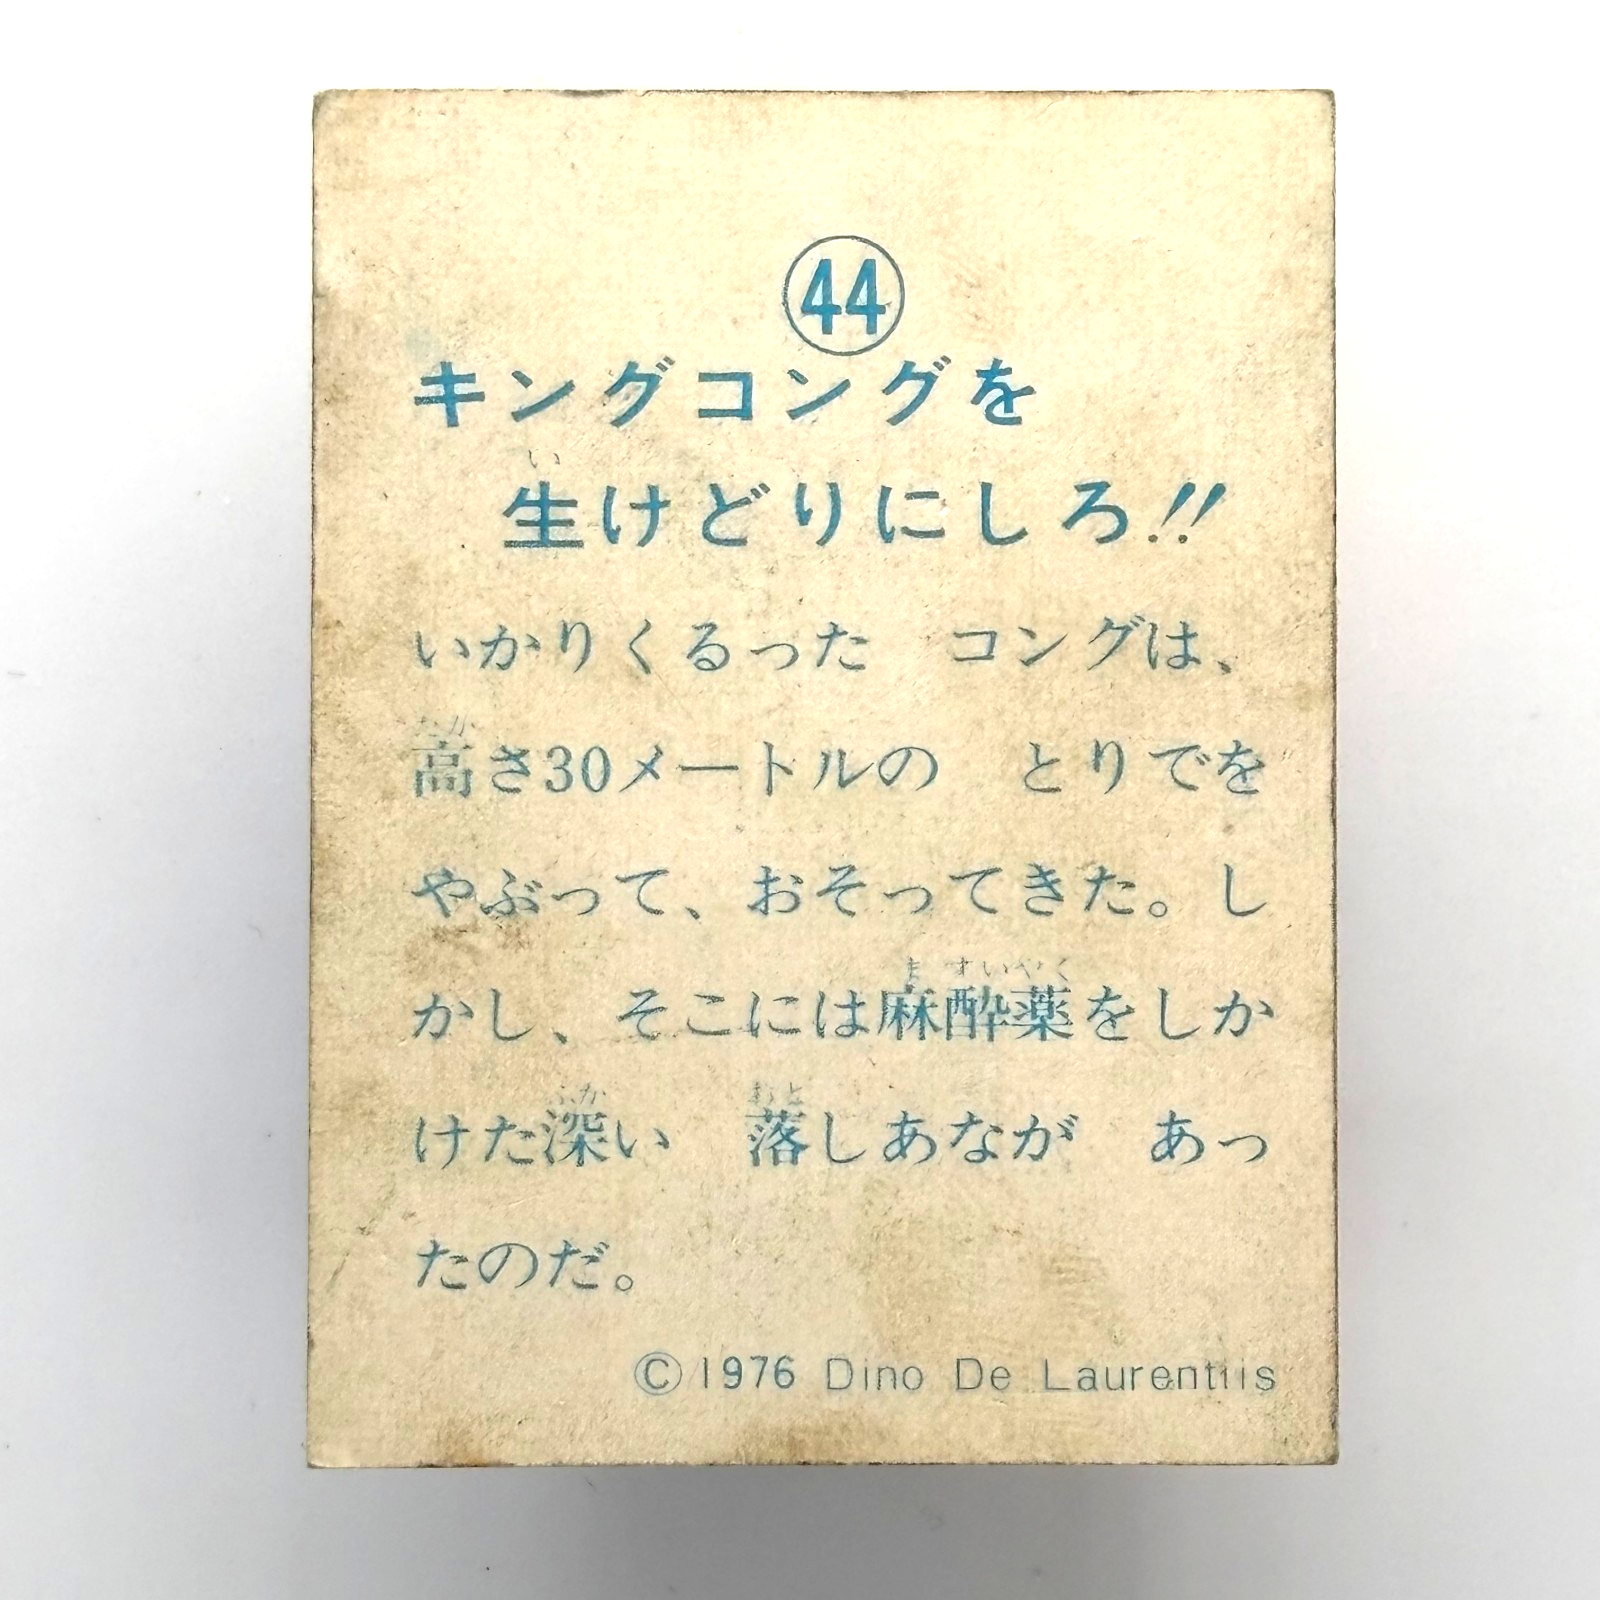 44
キングコングを
い
生けどりにしろ!!
いかりくるった　コングは、
たか
高さ30メートルの　とりでを
やぶって、おそってきた。し
ますいやく
かし、そこには麻酔薬をしか
ふか　おと
けた深い　落しあなが　あっ
たのだ。
©1976 Dino De Laurentiis